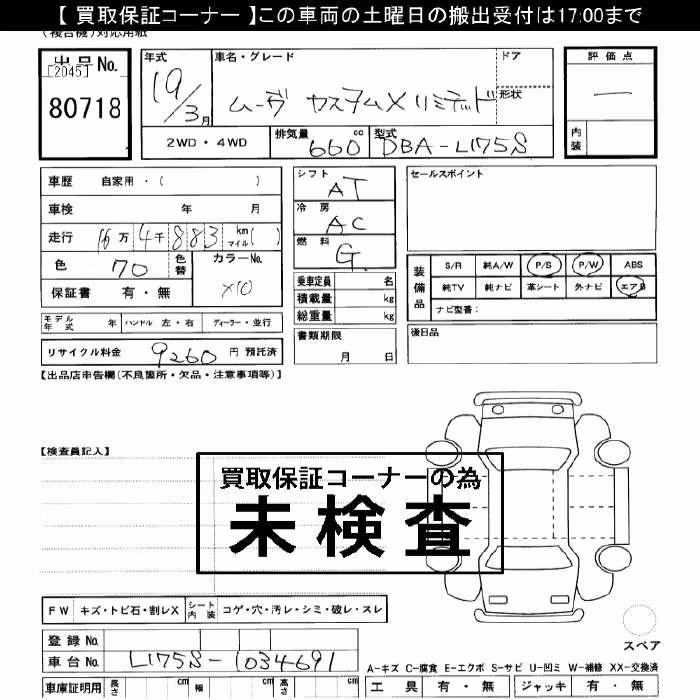 【 買取保証コーナー 】この車両の土曜日の搬出受付は17:00まで
(複合機)対応用紙
出品No.
[2045]
80718
年式
19/3月
車名・グレード
ムーヴ カスタムX リミテッド
ドア
形状
評価点
—
内装
2WD・4WD
排気量 660 cc
型式 DBA-L175S
車歴 自家用・( )
車検 年 月
走行 16万 4千 8 8 3 km マイル( )
色 70 色替
カラーNo. X10
保証書 有・無
シフト AT
冷房 AC
燃料 G
乗車定員 名
積載量 kg
総重量 kg
セールスポイント
装備品
S/R 純A/W P/S P/W ABS
純TV 純ナビ 革シート 外ナビ エアB
ナビ型番:
モデル年式 年 ハンドル 左・右 ディーラー・並行
リサイクル料金 9260 円 預託済
書類期限
月 日
後日品
【出品店申告欄(不良箇所・欠品・注意事項等)】
【検査員記入】
買取保証コーナーの為
未検査
FW キズ・トビ石・割レX シート内装 コゲ・穴・汚レ・シミ・破レ・スレ
登録No.
車台No. L175S-1034691
車庫証明用 長さ cm 幅 cm 高さ cm
スペア
A-キズ C-腐食 E-エクボ S-サビ U-凹ミ W-補修 XX-交換済
工具 有・無 ジャッキ 有・無